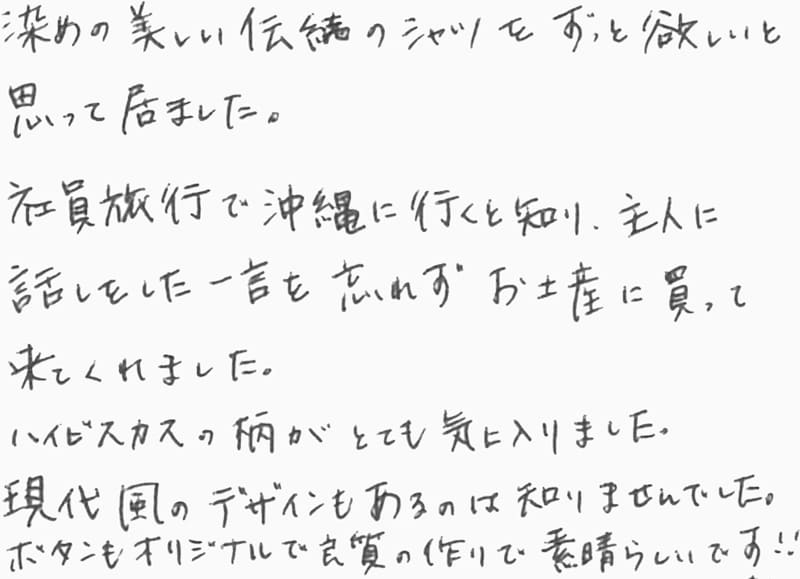 染めの美しい伝統のシャツをずっと欲しいと
思って居ました。
社員旅行で沖縄に行くと知り、主人に
話しをした一言を忘れずお土産に買って
来てくれました。
ハイビスカスの柄がとても気に入りました。
現代風のデザインもあるのは知りませんでした。
ボタンもオリジナルで良質の作りで素晴らしいです!!